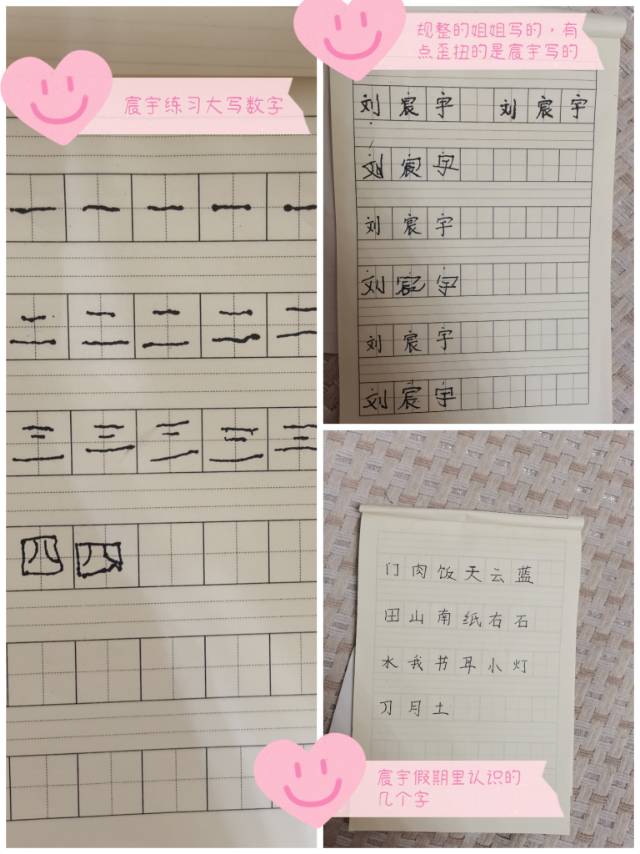 宸宇练习大写数字
一 一 一 一 一
二 二 二 二 二
三 三 三 三 三
四 四
规整的姐姐写的，有
点歪扭的是宸宇写的
刘 宸 宇 刘 宸 宇
刘 宸 宇
刘 宸 宇
刘 宸 宇
刘 宸 宇
刘 宸 宇
门 肉 饭 天 云 蓝
田 山 南 纸 右 石
水 我 书 耳 小 灯
习 月 土
宸宇假期里认识的
几个字